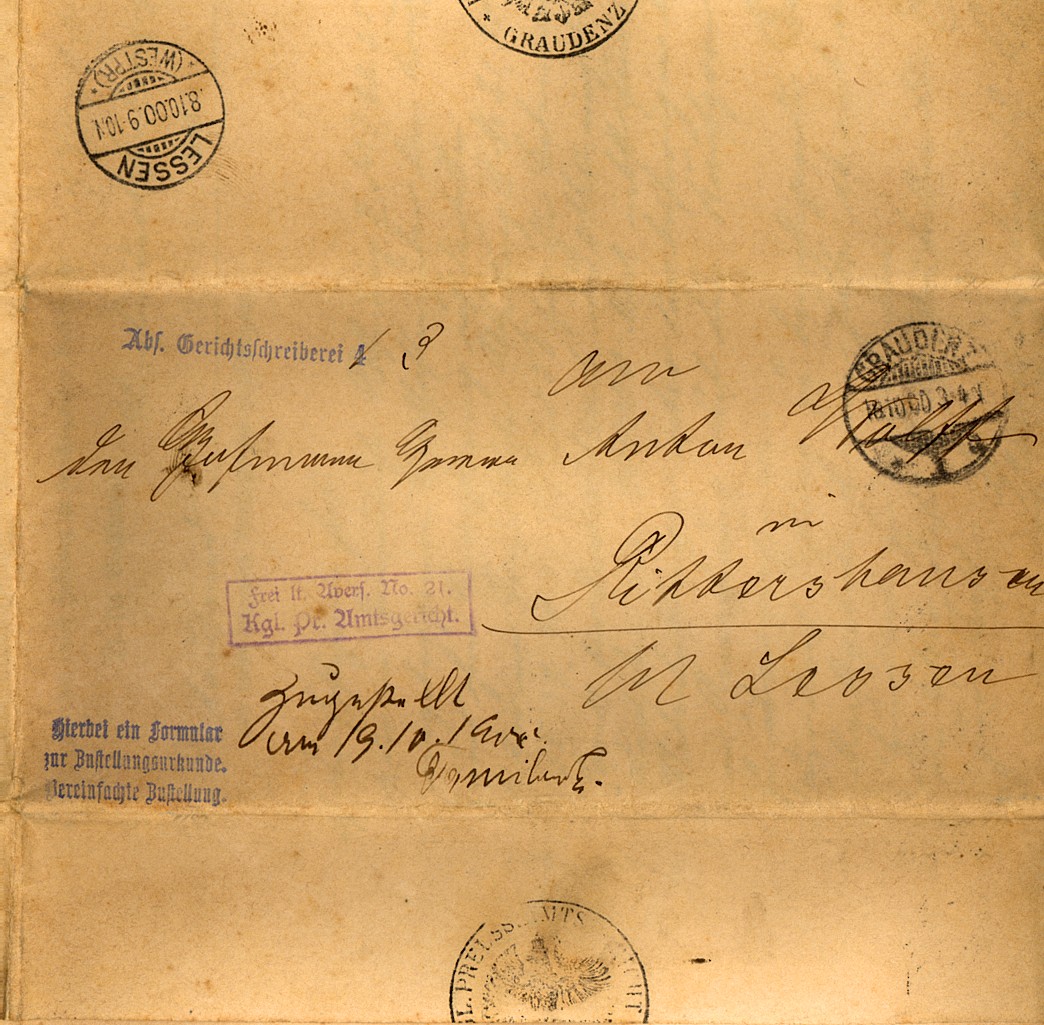 GRAUDENZ
(WESTPR)
8.10.00.9-10.V
LESSEN
Abs. Gerichtsschreiberei 4 3
An
GRAUDENZ
den Anton Wolff
in
Rittershausen
bei Lessen
Frei lt. Avers. No. 21.
Kgl. Pr. Amtsgericht.
Zugestellt
am 19.10.1900.
Hierbei ein Formular
zur Zustellungsurkunde.
Vereinfachte Zustellung.
GL. PREUSS. AMTSGERICHT